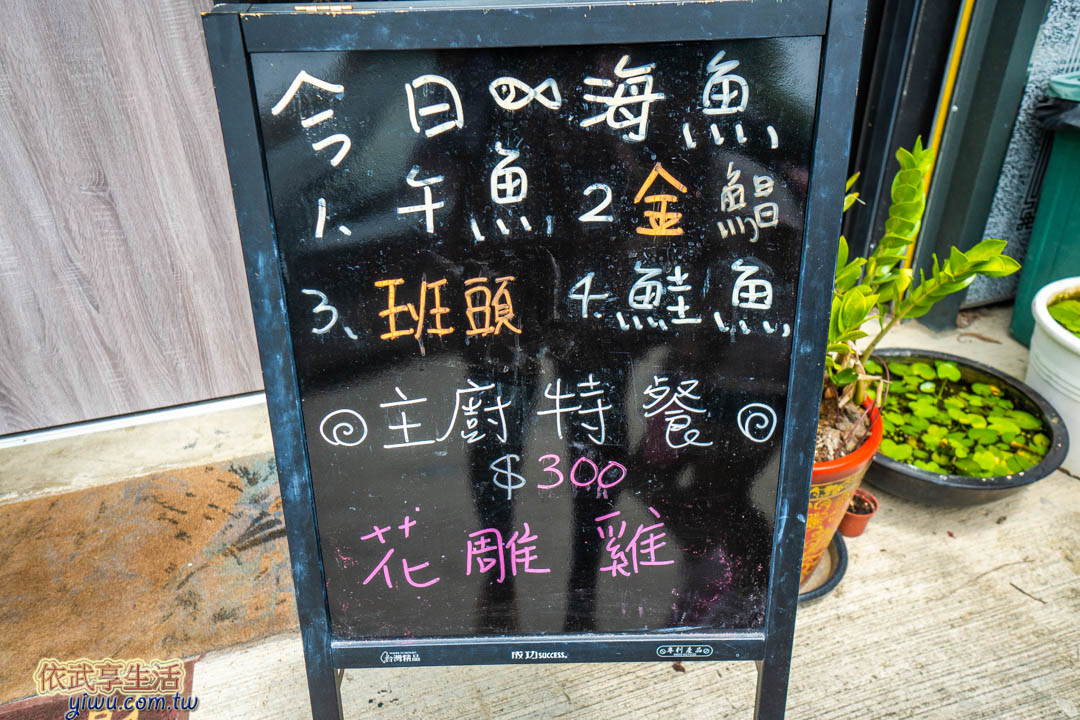 今日海魚
1、午魚 2 金鯧
3、班頭 4.鮭魚
主廚特餐
$300
花雕雞
台灣精品 成功SUCCESS® 專利產品
依武享生活
yiwu.com.tw